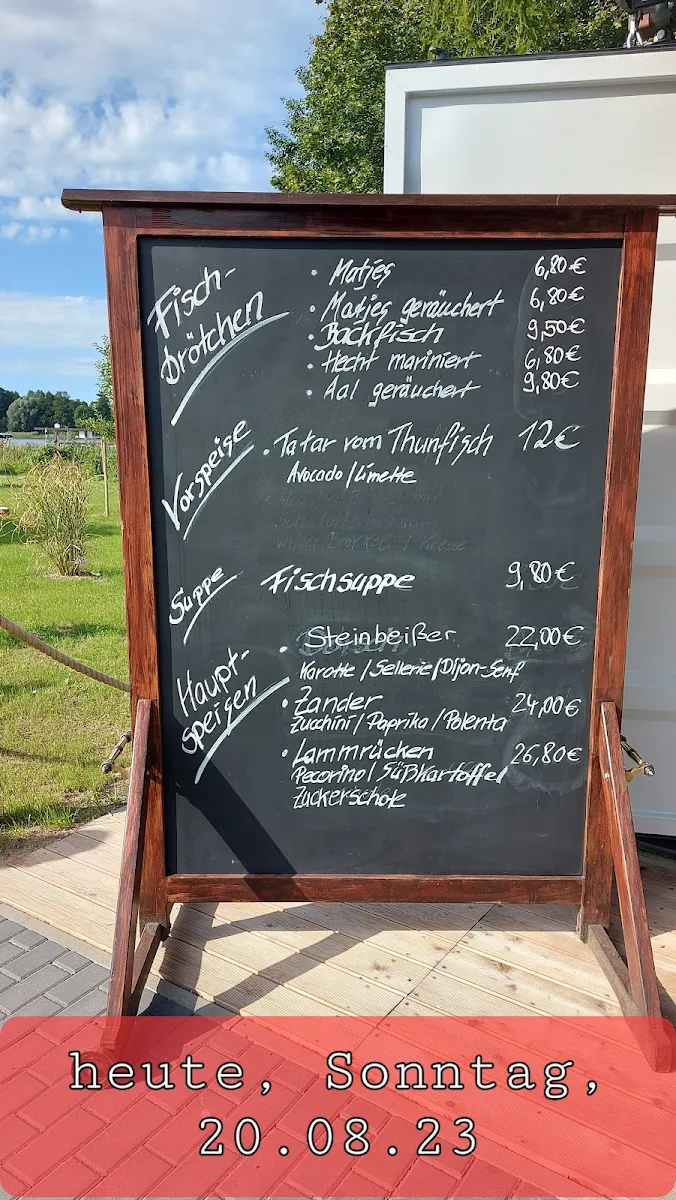 Fisch-
Brötchen
• Matjes 6,80€
• Matjes geräuchert 6,80€
• Backfisch 9,50€
• Hecht mariniert 6,80€
• Aal geräuchert 9,80€
Vorspeise
• Tatar vom Thunfisch 12€
Avocado/Limette
Suppe
Fischsuppe 9,80€
Haupt-
speisen
• Steinbeißer 22,00€
Karotte/Sellerie/Dijon-Senf
• Zander 24,00€
Zucchini/Paprika/Polenta
• Lammrücken 26,80€
Pecorino/Süßkartoffel
Zuckerschote
heute, Sonntag,
20.08.23